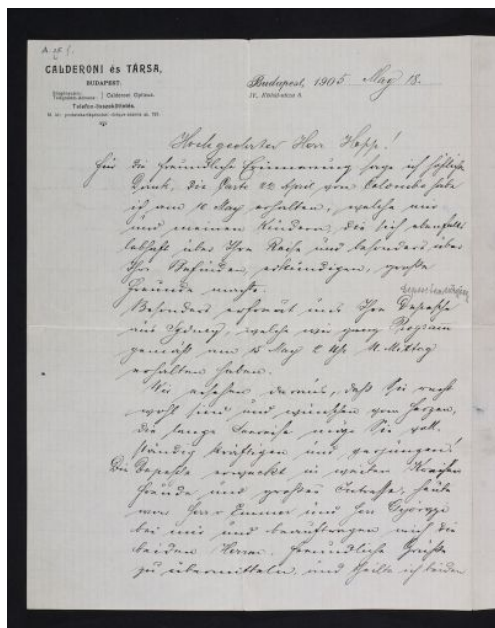 CALDERONI és TÁRSA,
BUDAPEST.
Calderoni Optikus.
Telefon-összeköttetés.
Budapest, 1905 May 18.
Hochgeehrter Herr Hopp!
Für die freundliche Erinnerung sage ich höflichst
Dank, die Karte 22 April von Colombo habe
ich am 10 May erhalten, welche mir
und meinen Kindern, die sich ebenfalls
lebhaft über Ihre Reise und besonders über
Ihr Befinden, erkundigen, große
Freunde machte.
Besonders erfreut uns Ihre Depesche
aus Sydney, welche wir ganz Program
gemäß am 15 May 2 Uhr N. Mittag
erhalten haben.
Wir ersehen daraus, daß Sie recht
wohl sind und wünschen vom Herzen,
die lange Seereise möge Sie voll-
ständig kräftigen und verjüngen!
Die Depesche erweckt in weiten Kreisen
Freude und großes Intresse, heute
waren Herr Emmer und Herr György
bei mir und beauftragen mich die
beiden Herren freundliche Grüße
zu übermitteln, und theilte ich beiden